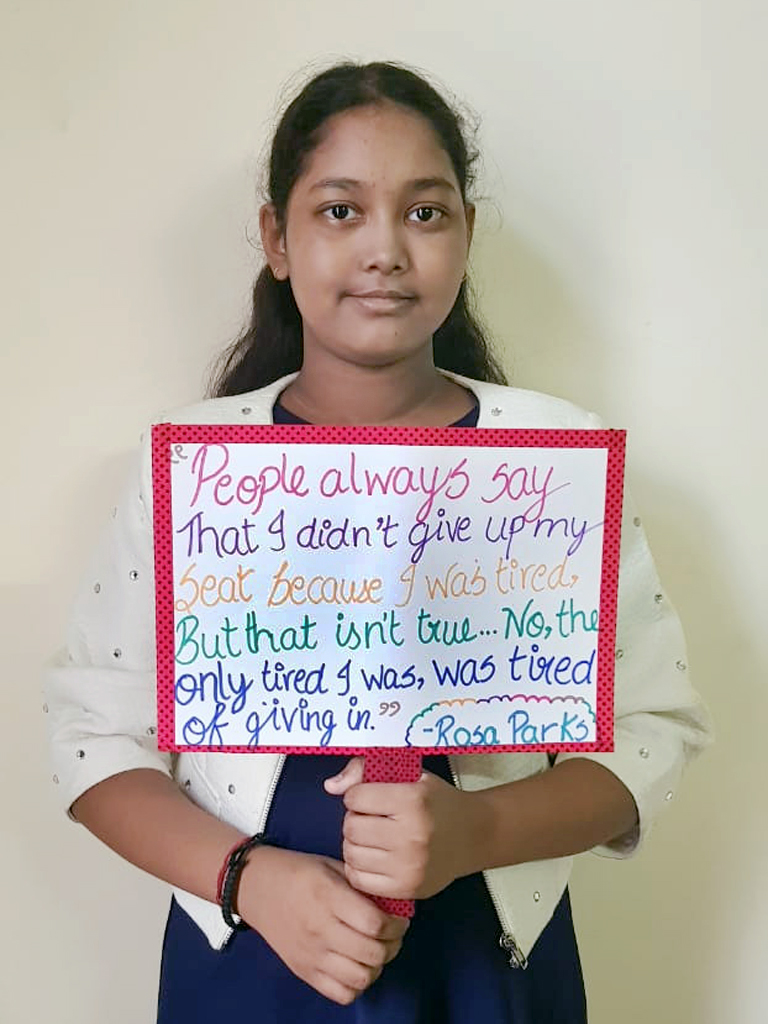 “People always say
That I didn't give up my
Seat because I was tired,
But that isn't true... No, the
only tired I was, was tired
of giving in.”
-Rosa Parks